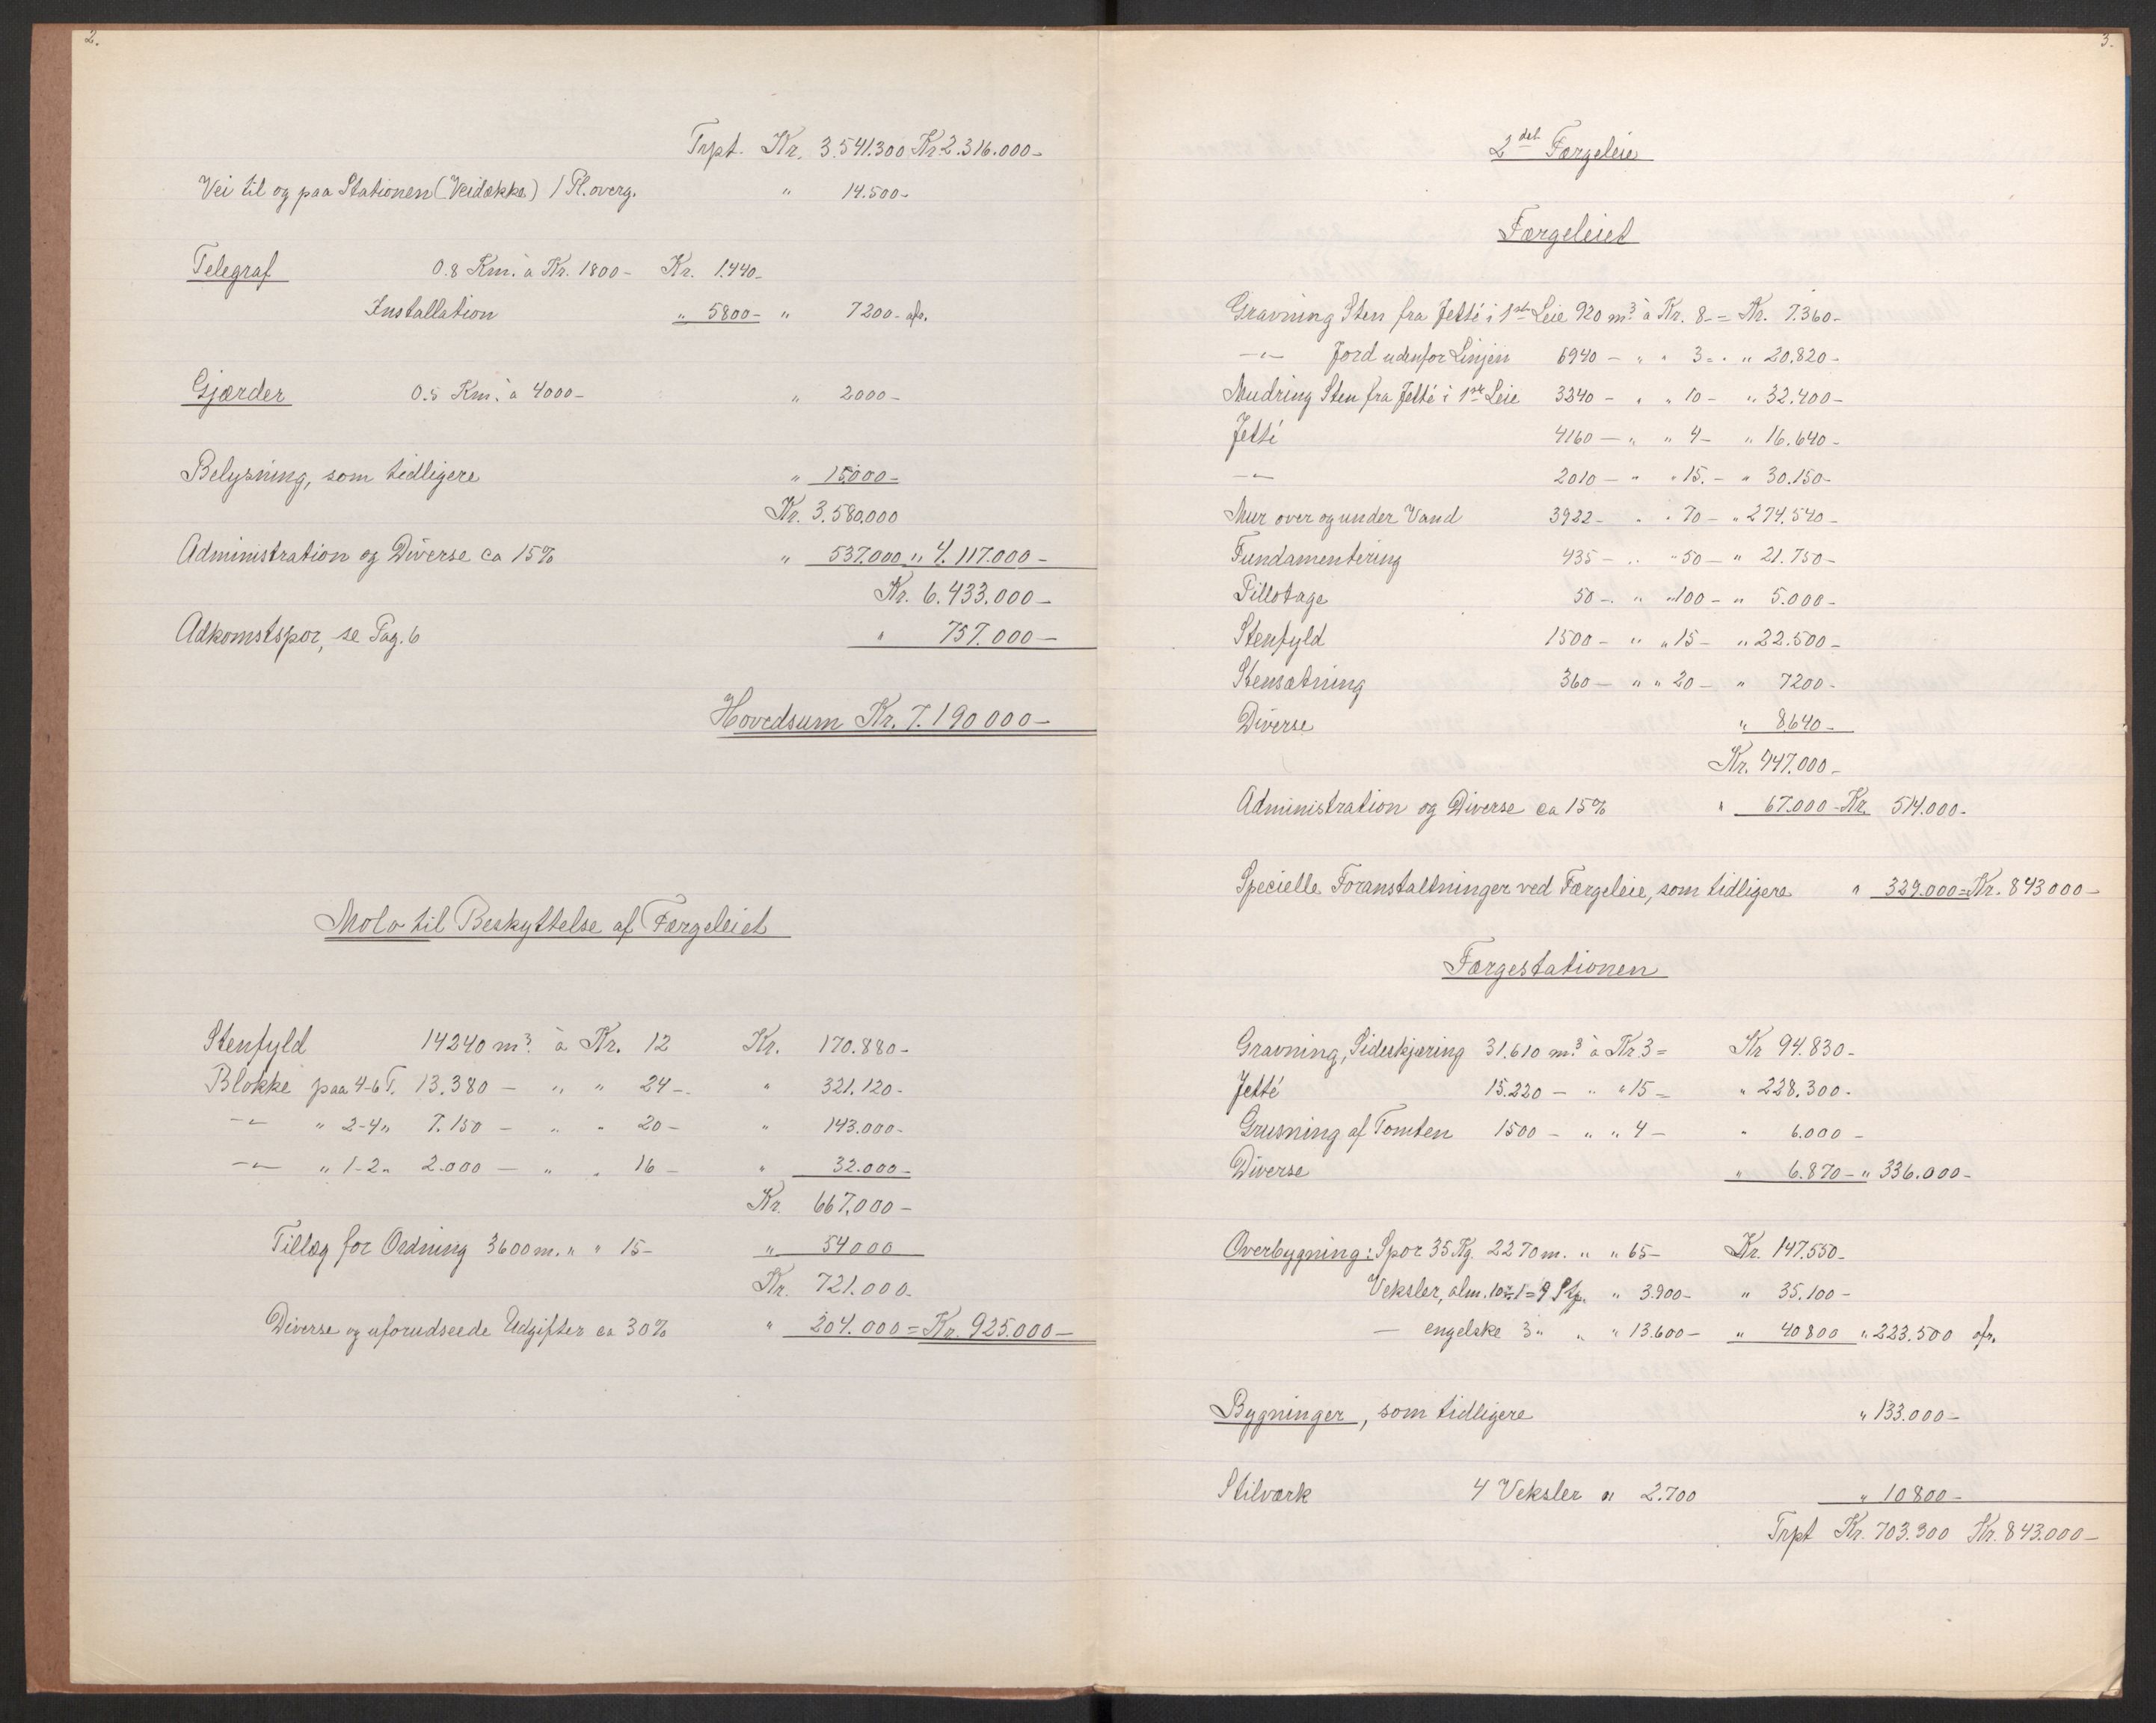 2.
Trpt. Kr. 3.541.300 Kr. 2.316.000-
Vei til og paa Stationen (Veidække) 1 Pl.overg. " 14.500-
Telegraf 0.8 Km. à Kr. 1800- Kr. 1.440-
Installation " 5800- " 7200- afr.
Gjærder 0.5 Km. à 4000- " 2000-
Belysning, som tidligere " 15.000-
Kr. 3.580.000
Administration og Diverse ca 15% " 537.000 " 4.117.000-
Kr. 6.433.000-
Adkomstspor, se Pag. 6 " 757.000-
Hovedsum Kr. 7.190000-
Molo til Beskyttelse af Færgeleiet
Stenfyld 14240 m³ à Kr. 12 Kr. 170.880-
Blokke paa 4-6 T. 13.380 - " " 24- " 321.120-
-"- " 2-4 " 7.150 - " " 20- " 143.000-
-"- " 1-2 " 2.000 - " " 16- " 32.000-
Kr. 667.000-
Tillæg for Ordning 3600 m. " " 15- " 54000
Kr. 721.000-
Diverse og uforudseede Udgifter ca 30% " 204.000 = Kr. 925.000-
3.
2det Færgeleie
Færgeleiet
Gravning Sten fra Jetté i 1ste Leie 920 m³ à Kr. 8- = Kr. 7.360-
-"- Jord udenfor Linjen 6940 - " " 3 = " " 20.820-
Mudring Sten fra Jetté i 1ste Leie 3240 - " " 10- " 32.400-
Jetté 4160 - " " 4- " 16.640-
-"- 2010 - " " 15.- " 30.150-
Mur over og under Vand 3922- " " 70- " 274.540-
Fundamentering 435- " " 50- " 21.750-
Pillotage 50- " " 100- " 5.000-
Stenfyld 1500- " " 15- " 22.500-
Stensætning 360- " " 20- " 7200-
Diverse " 8640-
Kr. 447.000-
Administration og Diverse ca 15% " 67.000- Kr. 514.000-
Specielle Foranstaltninger ved Færgeleie, som tidligere " 329.000 = Kr. 843000-
Færgestationen
Gravning, Sideskjæring 31.610 m³ à Kr 3 = Kr 94.830-
Jetté 15.220 - " " 15 = " 228.300-
Grusning af Tomten 1500 - " " 4- " 6.000-
Diverse " 6.870- " 336.000-
Overbygning: Spor 35 Kg. 2270 m. " " 65- Kr. 147.550-
Veksler, alm. 10÷1=9 Stk. " 3.900- " 35.100-
- engelske 3 " " " 13.600- " 40800 " 223.500 afr.
Bygninger, som tidligere " 133.000-
Stilværk 4 Veksler à 2.700 " 10800-
Trpt Kr. 703.300 Kr. 843.000-